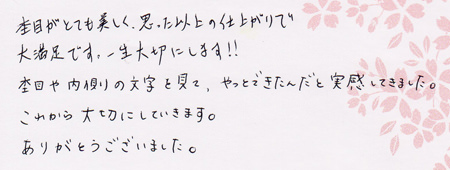 杢目がとても美しく、思った以上の仕上がりで
大満足です。一生大切にします!!
杢目や内側りの文字を見て、やっとできたんだと実感してきました。
これから大切にしていきます。
ありがとうございました。